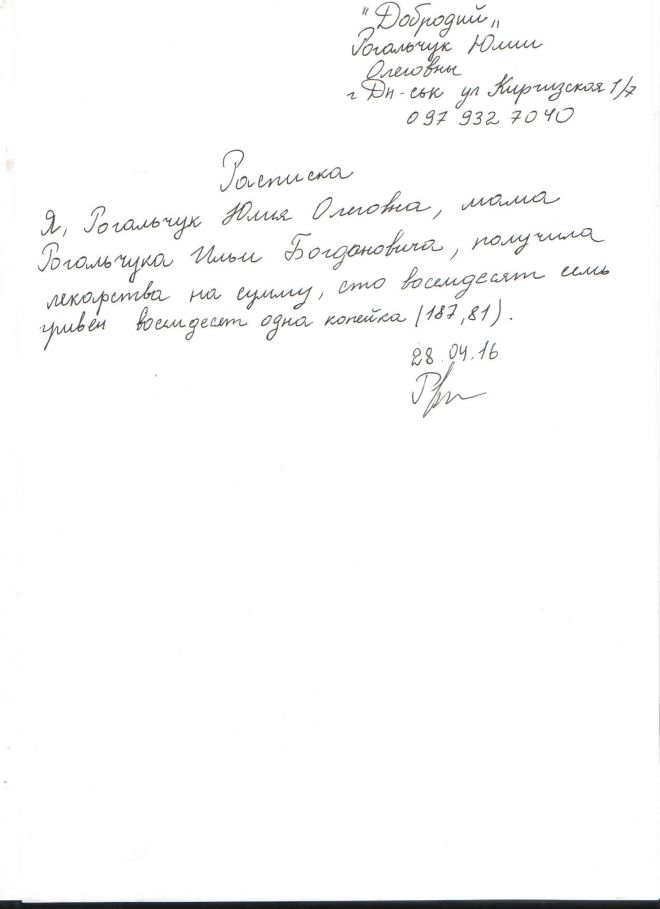 "Добродий"
Рогальчук Юлии
Олеговны
г Дн-ськ ул Киргизская 1/7
097 932 7040
Расписка
Я, Рогальчук Юлия Олеговна, мама
Рогальчука Ильи Богдановича, получила
лекарства на сумму, сто восемдесят семь
гривен восемдесят одна копейка (187,81).
28.04.16